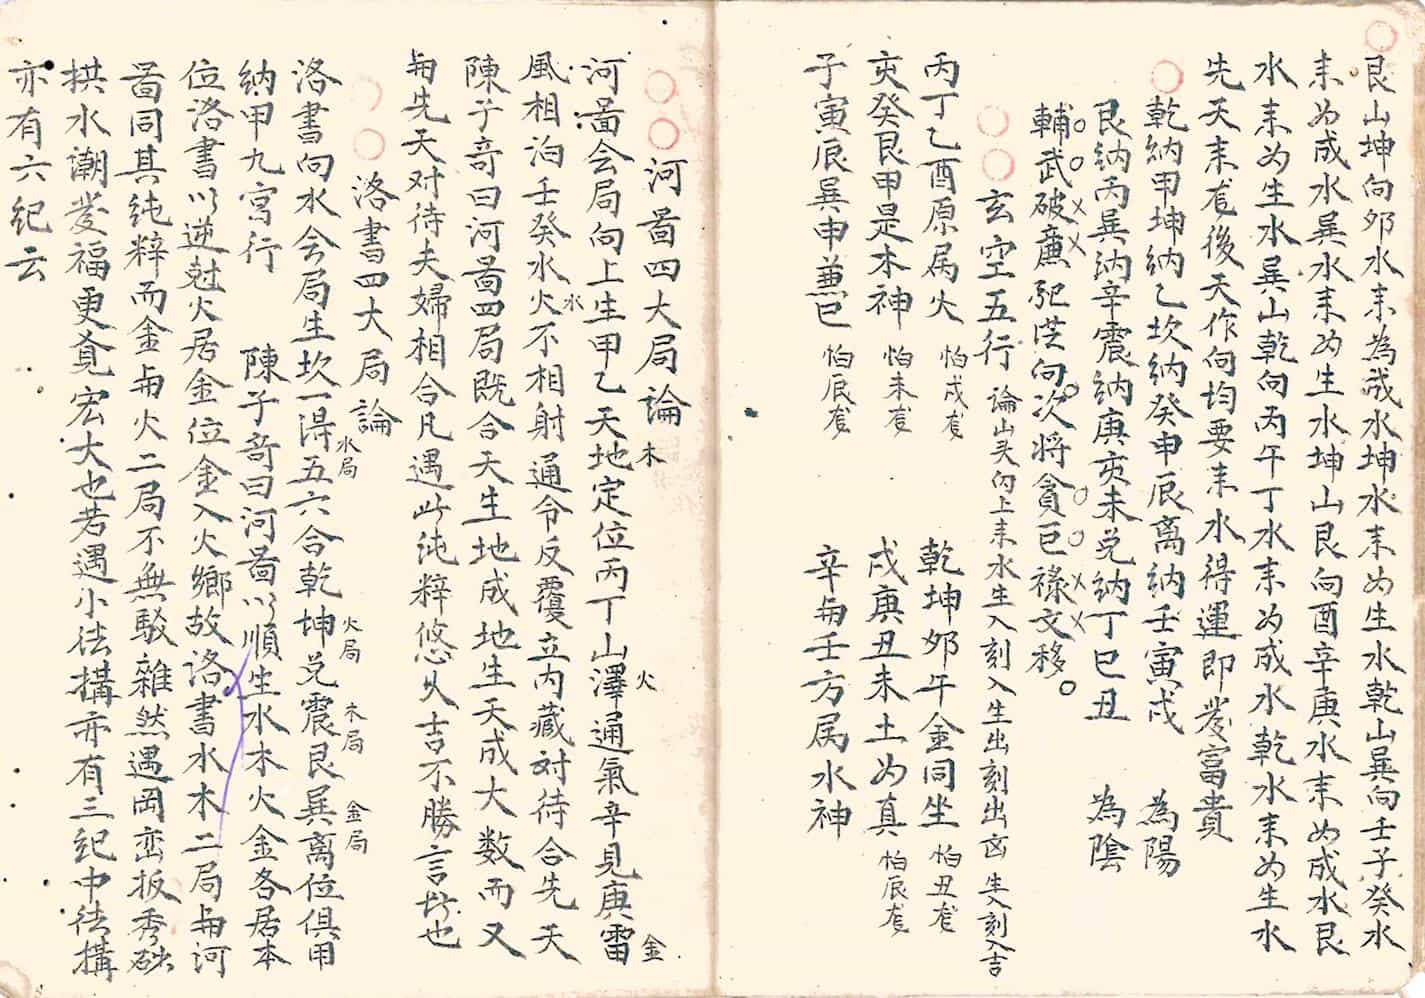 艮山坤向夘水耒為成水坤水耒为生水乾山巽向壬子癸水
耒为成水巽水耒为生水坤山艮向酉辛庚水耒为成水艮
水耒为生水巽山乾向丙午丁水耒为成水乾水耒为生水
先天耒龙後天作向均要耒水得運即发富貴
乾納甲坤納乙坎納癸申辰离納壬寅戌 為陽
艮納丙巽納辛震納庚亥未兑納丁巳丑 為陰
輔武破廉現洪向次将貪巨祿文移
玄空五行 論山头向上耒水生入刻入生出刻出凶 生入刻入吉
丙丁乙酉原属火 怕戌龙 乾坤夘午金同坐 怕丑龙
亥癸艮甲是木神 怕未龙 戌庚丑未土为真 怕辰龙
子寅辰巽申兼巳 怕辰龙 辛与壬方属水神
河畐四大局論
河畐会局向上生甲乙天地定位丙丁山澤通氣辛見庚雷
木 火 金
風相泊壬癸水火不相射通令反覆立内藏对待合先天
水
陳子奇曰河畐四局既合天生地成地生天成大数而又
与先天对待夫婦相合凡遇此沌粹悠久吉不勝言矣也
洛書四大局論
洛書向水会局生坎一得五六合乾坤兑震艮巽离位俱用
水局 火局 木局 金局
納甲九宮行 陳子奇曰河畐以順生水木火金各居本
位洛書以逆尅火居金位金入火鄉故洛書水木二局与河
畐同其純粹而金与火二局不無駁雜然遇岡峦扳秀砂
拱水潮发福更覔宏大也若遇小法搆亦有三紀中法搆
亦有六紀云